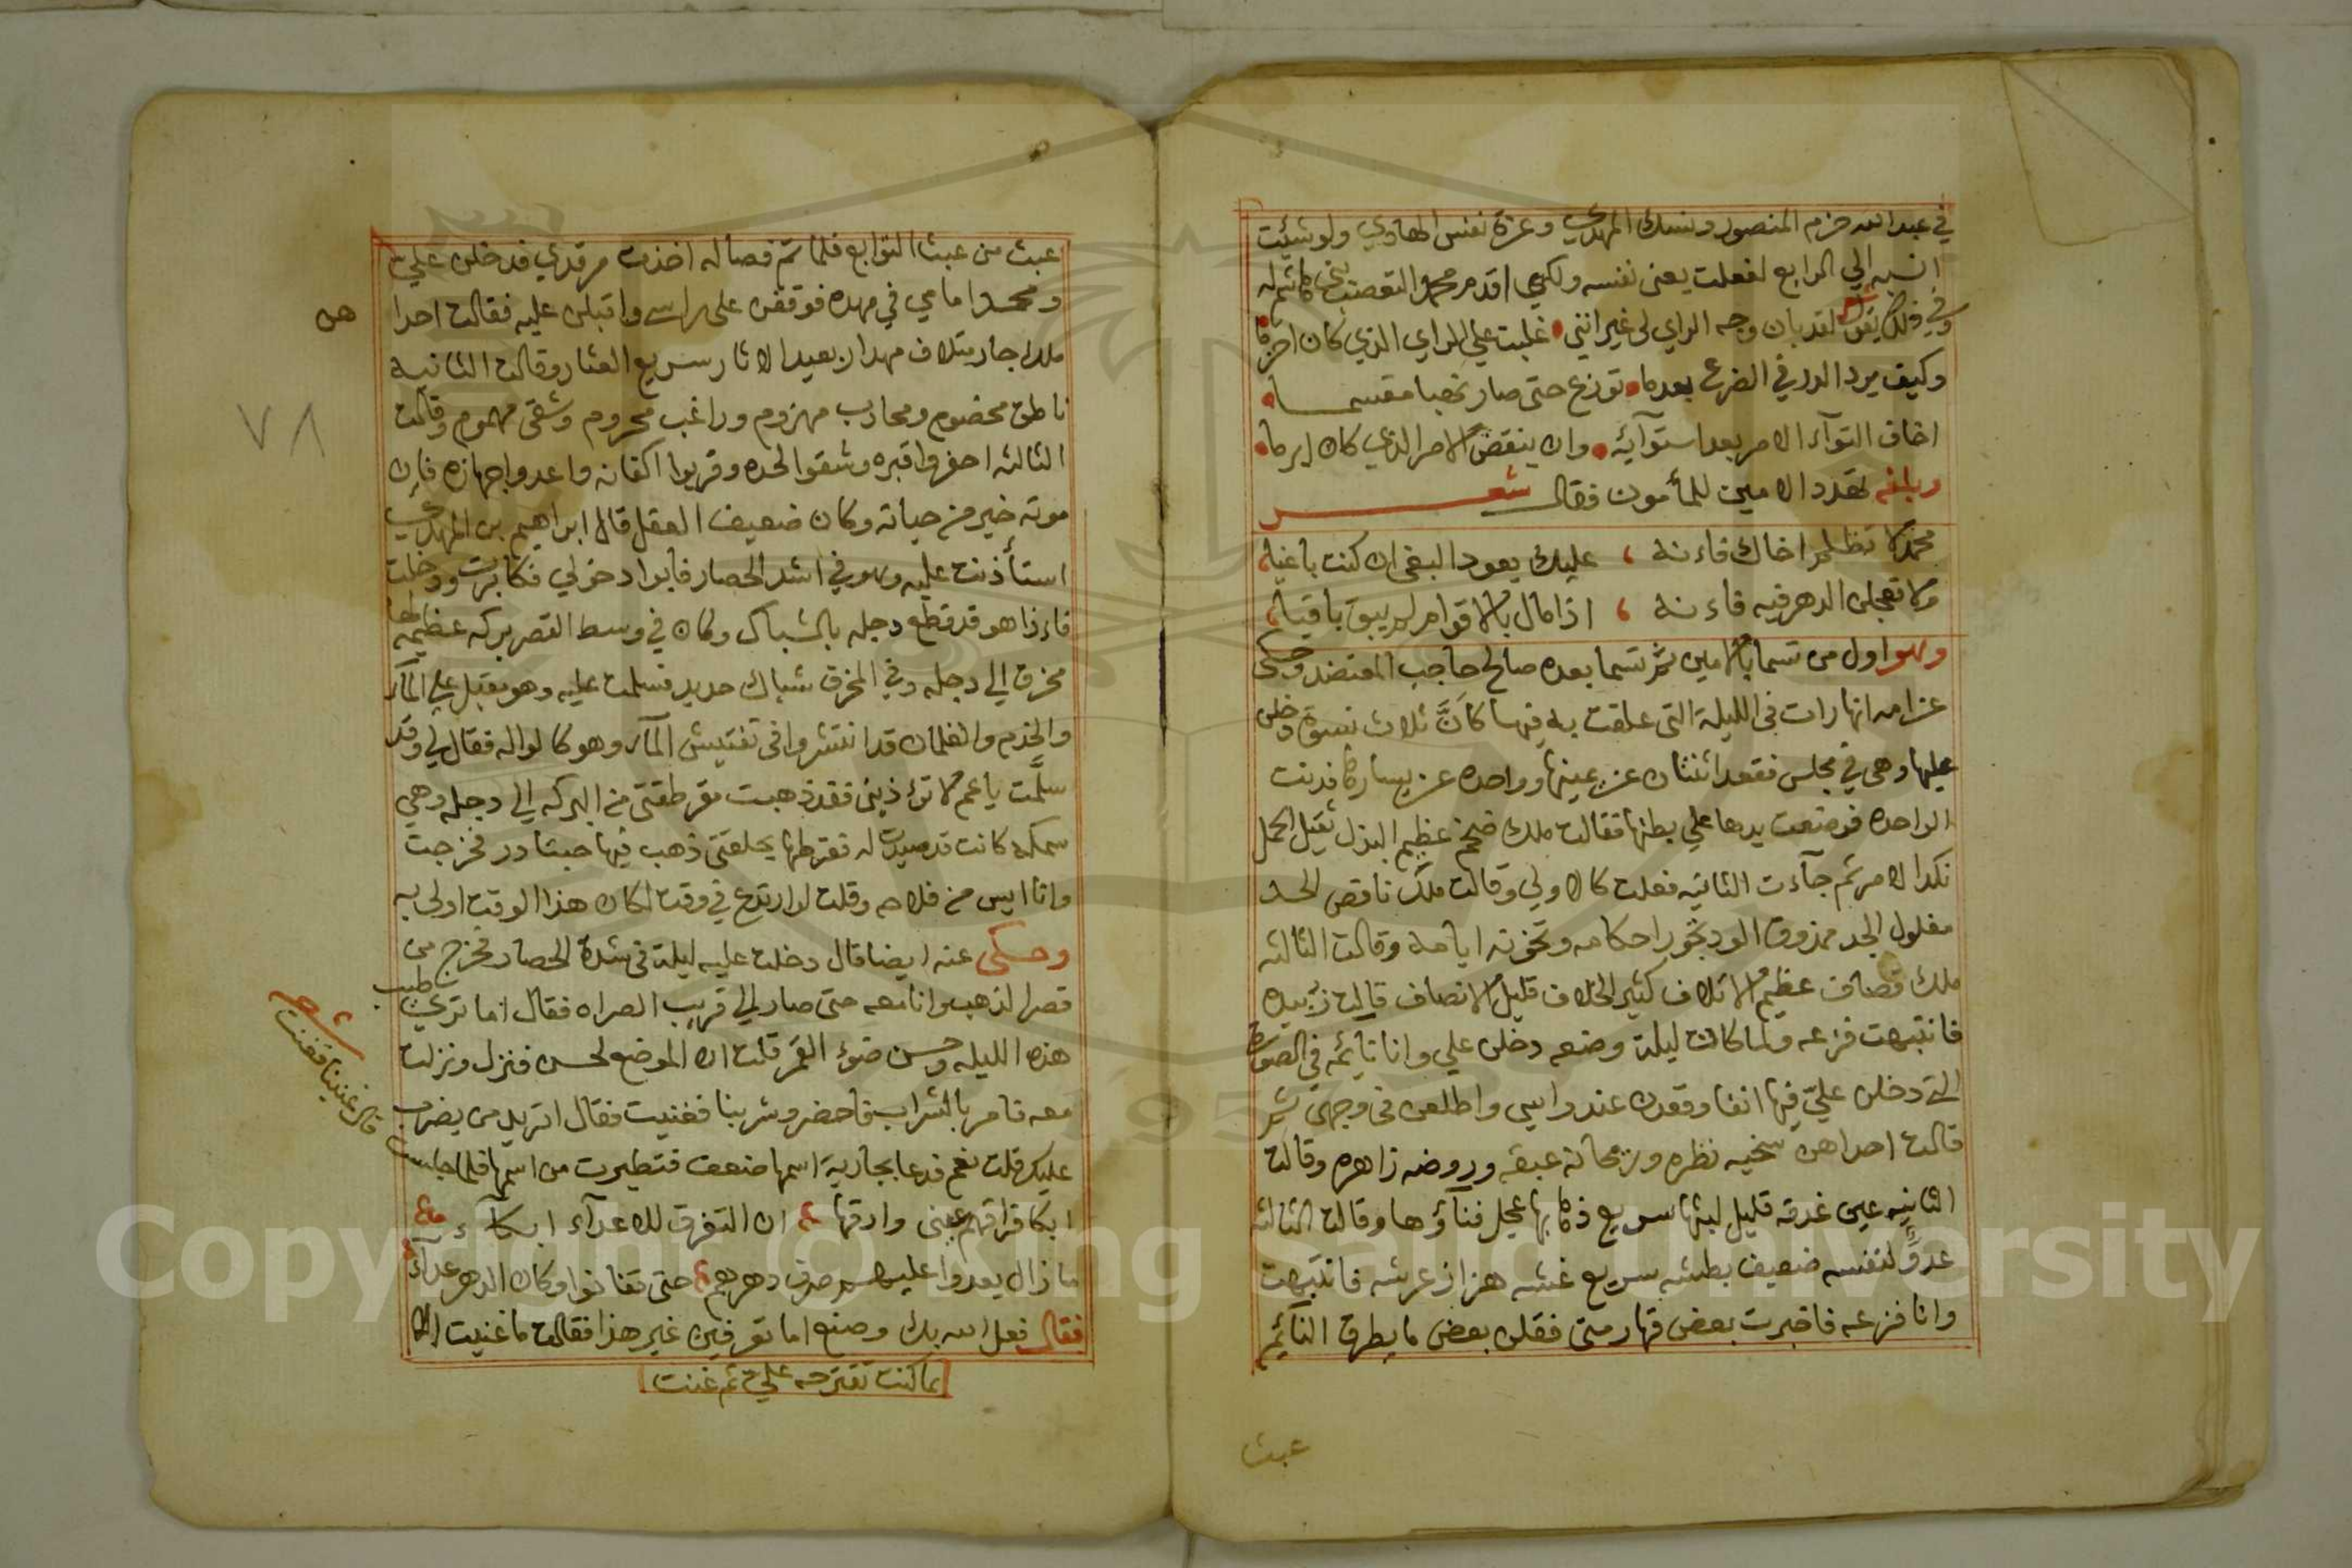 في عبد الله حزم المنصور ونسك المهدي وعزة نفس الهادي ولو شئت
انسبه الي الرابع لفعلت يعني نفسه ولكني اقدم محمدا لتعصب بني هاشم له
وفي ذلك يقول شعر لقد بان وجه الراي لي غير انني غلبت علي الراي الذي كان احزما
وكيف يرد الدر في الضرع بعدما توزع حتى صار نهبا مقسما
اخاف التوآء الامر بعد استوآئه وان ينقض الامر الذي كان ابرما
وبلغه تهدد الامين للمأمون فقال شعر
محمد لا تظلم اخاك فاءنه عليك يعود البغي ان كنت باغيا
ولا تعجلن الدهر فيه فاءنه اذا مال بالاقوام لم يبق باقيا
وهو اول من تسما بالامين ثم تسما بعده صالح حاجب المعتضد وحكى
عن امه انها رات في الليلة التي علقت به فيها كانَّ ثلاث نسوة دخلن
عليها وهي في مجلس فقعد اثنتان عن يمينها وواحده عن يسارها فدنت
الواحده فوضعت يدها علي بطنها فقالت ملك ضخم عظيم البذل ثقيل الحمل
نكد الامر ثم جآءت الثانيه فعلت كالاولي وقالت ملك ناقص الحد
مفلول الجد ممذوق الود تجور احكامه وتخونه ايامه وقالت الثالثه
ملك قصاف عظيم الاتلاف كثير الخلاف قليل الانصاف قالت زبيده
فانتبهت فزعه ولما كانت ليلة وضعه دخلن علي وانا نائمه في الصورة
التي دخلن عليّ فيها انفا وقعدن عند راسي واطلعن في وجهي ثم
قالت احداهن سخيه نظره وريحانه عبقه وروضه زاهره وقالت
الثانيه عين غدقه قليل لبثها سريع ذهابها عجل فنآؤها وقالت الثالثه
عدوٌّ لنفسه ضعيف بطشه سريع غشه هزاز عرشه فانتبهت
وانا فزعه فاخبرت بعض قهارمتي فقلن بعض ما يطرق النآئم
عبث
عبث من عبث التوابع فلما تم فصاله اخذت مرقدي فدخلن علي
ومحمد امامي في مهده فوقفن على راسي واقبلن عليه فقالت احدا
هن
ملك جار متلاف مهدار بعيد الاثار سريع العثار وقالت الثانيه
ناطق مخصوم ومحارب مهزوم وراغب محروم وشقى مهموم وقالت
٧٨
الثالثه احفروا قبره وشقوا لحده وقربوا اكفانه واعدوا جهازه فان
موته خير من حياته وكان ضعيف العقل قال ابراهيم بن المهدي
استأذنت عليه وهو في اشد الحصار فابوا دخولي فكابرت ودخلت
فاءذا هو قد قطع دجله بالشباك وكان في وسط القصر بركه عظيمه لها
مخرق الي دجله وفي المخرق شباك حديد فسلمت عليه وهو مقبل علي المآء
والخدم والغلمان قد انتشروا في تفتيش المآء وهو كالواله فقال لي وقد
سلَّمت يا عم لا تؤذيني فقد ذهبت مقرطقتي من البركه الي دجله وهي
سمكه كانت قد صيدت له فقرطها بحلقتي ذهب فيها حبتا در فخرجت
وانا ايس من فلاحه وقلت لو ارتدع في وقت لكان هذا الوقت اولى به
وحكى عنه ايضا قال دخلت عليه ليلة في شدة الحصار فخرج من
قصر الذهب وانا معه حتى صار الي قريب الصراه فقال اما تري طيب
هذه الليله وحسن ضوء القمر قلت ان الموضع لحسن فنزل ونزلت
معه فامر بالشراب فاحضر وشربنا فغنيت فقال اتريد من يضرب
عليك قلت نعم فدعا بجارية اسمها ضعف فتطيرت من اسمها فلما جلست
قال غنينا فغنت
شعر
ابكا فراقهم عيني وارقها ان التفرق للاعدآء ابكآء
ما زال يعدوا عليهم صرف دهرهم حتى تفانوا وكان الدهر عدآء
فقال فعل الله بك وصنع اما تعرفين غير هذا فقالت ما غنيت الا
بما كنت تقترحه علي ثم غنت
Copyright © King Saud University